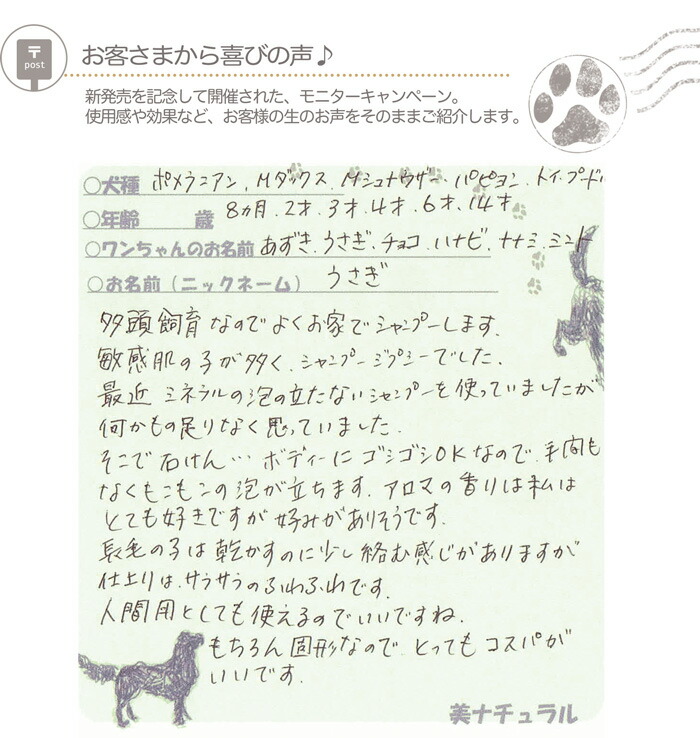 〒
post
お客さまから喜びの声♪
新発売を記念して開催された、モニターキャンペーン。
使用感や効果など、お客様の生のお声をそのままご紹介します。
○犬種 ポメラニアン、Mダックス、Mシュナウザー、パピヨン、トイプードル
○年齢 歳 8カ月、2才、3才、4才、6才、14才
○ワンちゃんのお名前 あずき、うさぎ、チョコ、ハナビ、ナナミ、ミント
○お名前（ニックネーム） うさぎ
多頭飼育なのでよくお家でシャンプーします。
敏感肌の子が多く、シャンプージプシーでした。
最近 ミネラルの泡の立たないシャンプーを使っていましたが
何かもの足りなく思っていました。
そこで石けん…ボディーにゴシゴシOKなので、手間も
なくもこもこの泡が立ちます。アロマの香りは私は
とても好きですが好みがありそうです。
長毛の子は乾かすのに少し絡む感じがありますが
仕上りは、サラサラのふわふわです。
人間用としても使えるのでいいですね。
もちろん固形なので、とってもコスパが
いいです。
美ナチュラル